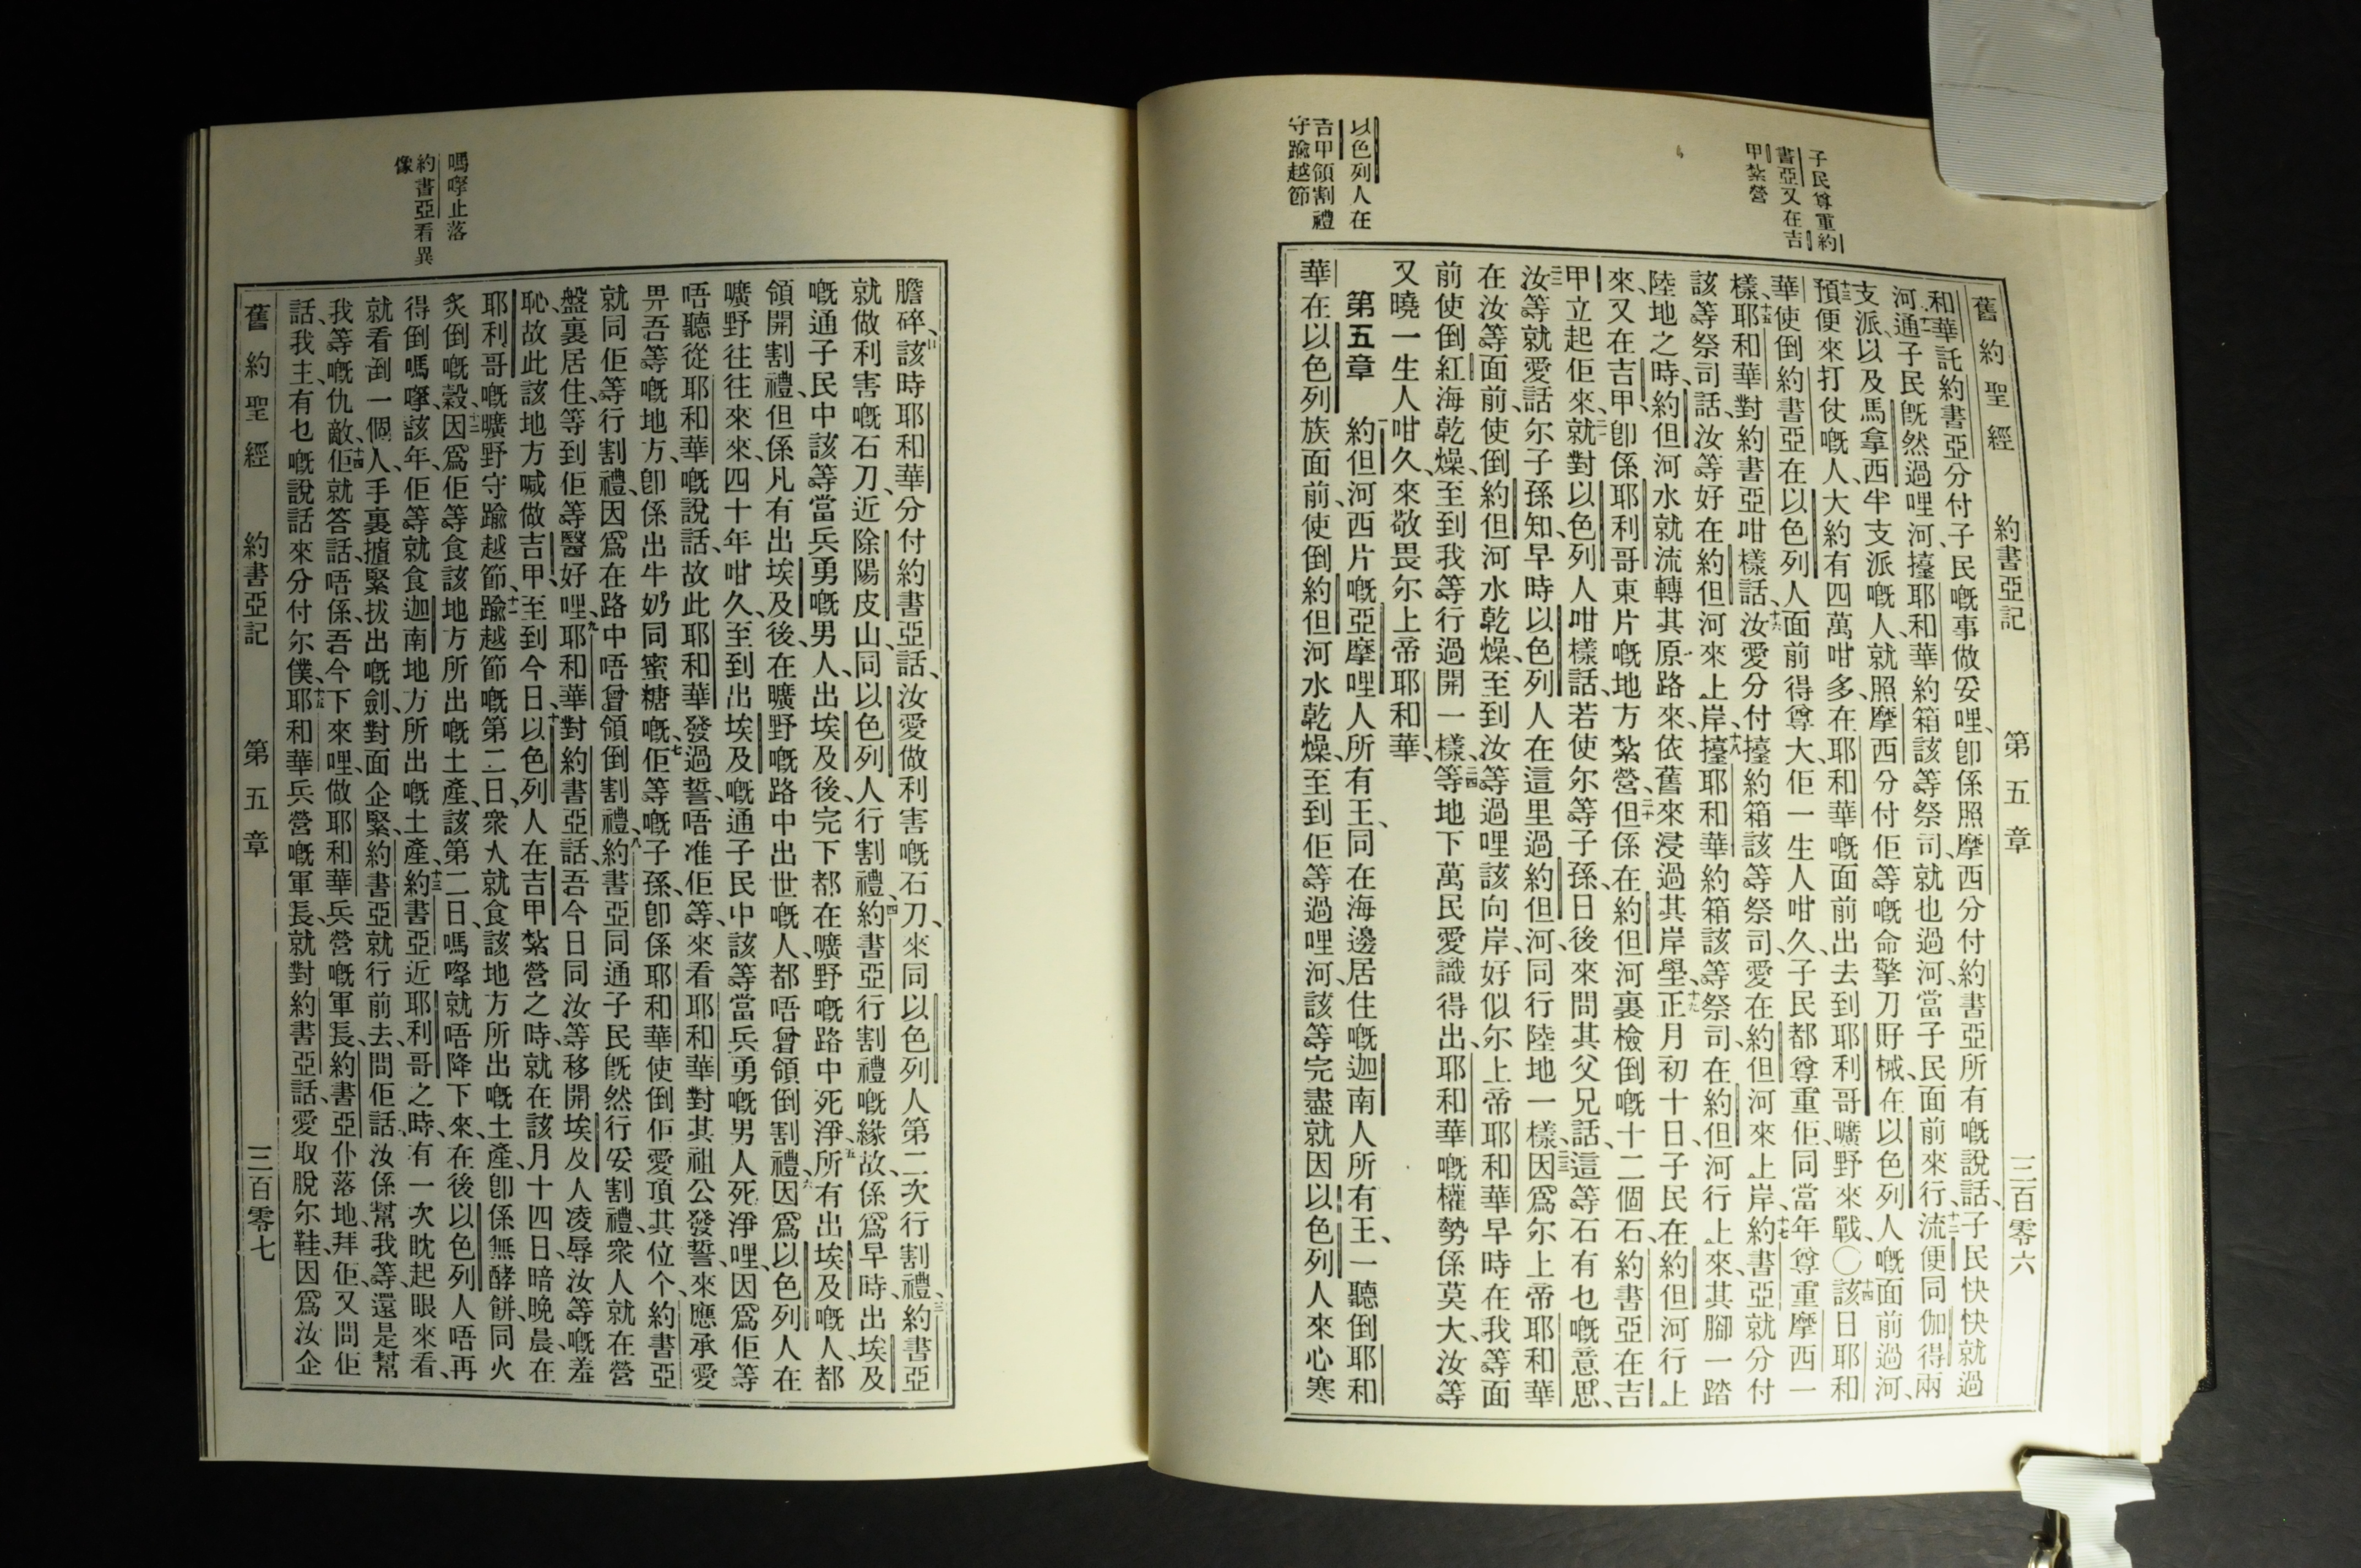 子民尊重約
書亞又在吉
甲紮營
以色列人在
吉甲領割禮
守踰越節
舊約聖經 約書亞記 第五章 三百零六
和華託約書亞分付子民嘅事做妥哩、卽係照摩西分付約書亞所有嘅說話、子民快快就過
河、十一通子民旣然過哩河、擡耶和華約箱該等祭司、就也過河、當子民面前來行、十二流便同伽得兩
支派、以及馬拿西半支派嘅人、就照摩西分付佢等嘅命擎刀䏙械、在以色列人嘅面前過河、
十三預便來打仗嘅人、大約有四萬咁多、在耶和華嘅面前出去到耶利哥曠野來戰、〇十四該日耶和
華使倒約書亞在以色列人面前得尊大、佢一生人咁久、子民都尊重佢、同當年尊重摩西一
樣、十五耶和華對約書亞咁樣話、十六汝愛分付擡約箱該等祭司、愛在約但河來上岸、十七約書亞就分付
該等祭司話、汝等好在約但河來上岸、十八擡耶和華約箱該等祭司、在約但河行上來、其腳一踏
陸地之時、約但河水就流轉其原路來、依舊來浸過其岸壆、十九正月初十日、子民在約但河行上
來、又在吉甲、卽係耶利哥東片嘅地方紮營、二十但係在約但河裏檢倒嘅十二個石、約書亞在吉
甲立起佢來、二一就對以色列人咁樣話、若使尔等子孫、日後來問其父兄話、這等石有乜嘅意思、
二二汝等就愛話尔子孫知、早時以色列人在這里過約但河、同行陸地一樣、二三因爲尔上帝耶和華
在汝等面前、使倒約但河水乾燥、至到汝等過哩該向岸、好似尔上帝耶和華早時在我等面
前使倒紅海乾燥、至到我等行過開一樣、二四等地下萬民愛識得出、耶和華嘅權勢係莫大、汝等
又曉一生人咁久、來敬畏尔上帝耶和華、
第五章 一約但河西片嘅亞摩哩人所有王、同在海邊居住嘅迦南人所有王、一聽倒耶和
華在以色列族面前、使倒約但河水乾燥、至到佢等過哩河、該等完盡就因以色列人來心寒
嗎嗱止落
約書亞看異
像
膽碎、二該時耶和華分付約書亞話、汝愛做利害嘅石刀、來同以色列人第二次行割禮、三約書亞
就做利害嘅石刀、近除陽皮山、同以色列人行割禮、四約書亞行割禮嘅緣故、係爲早時出埃及
嘅通子民中、該等當兵勇嘅男人、出埃及後、完下都在曠野嘅路中死淨、五所有出埃及嘅人、都
領開割禮、但係凡有出埃及後、在曠野嘅路中出世嘅人、都唔曾領倒割禮、六因爲以色列人在
曠野往往來來、四十年咁久、至到出埃及嘅通子民中、該等當兵勇嘅男人死淨哩、因爲佢等
唔聽從耶和華嘅說話、故此耶和華發過誓、唔准佢等、來看耶和華對其祖公發誓、來應承愛
畀吾等嘅地方、卽係出牛奶同蜜糖嘅、七佢等嘅子孫、卽係耶和華使倒佢愛頂其位个、約書亞
就同佢等行割禮、因爲在路中唔曾領倒割禮、八約書亞同通子民旣然行妥割禮、衆人就在營
盤裏居住、等到佢等醫好哩、九耶和華對約書亞話、吾今日同汝等移開埃及人凌辱汝等嘅羞
恥、故此該地方喊做吉甲、至到今日、十以色列人在吉甲紮營之時、就在該月十四日、暗晚晨在
耶利哥嘅曠野守踰越節、十一踰越節嘅第二日、衆人就食該地方所出嘅土產、卽係無酵餅、同火
炙倒嘅穀、十二因爲佢等食該地方所出嘅土產、該第二日、嗎嗱就唔降下來、在後以色列人唔再
得倒嗎嗱、該年、佢等就食迦南地方所出嘅土產、十三約書亞近耶利哥之時、有一次眈起眼來看、
就看到一個人、手裏攎緊拔出嘅劍、對面企緊、約書亞就行前去、問佢話、汝係幫我等、還是幫
我等嘅仇敵、十四佢就答話、唔係、吾今下來哩、做耶和華兵營嘅軍長、約書亞仆落地拜佢、又問佢
話、我主、有乜嘅說話來分付尔僕、十五耶和華兵營嘅軍長、就對約書亞話、愛取脫尔鞋、因爲汝企
舊約聖經 約書亞記 第五章 三百零七